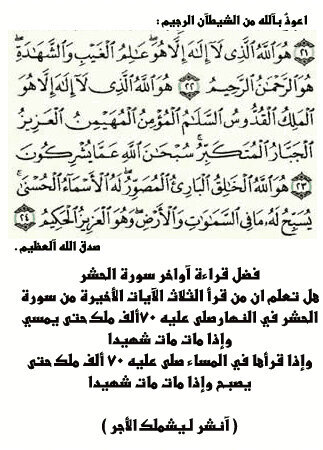 اعوذُ بـآلله من الشيطآن الرجيم :
۝٢١ هُوَ اللَّهُ الَّذِى لَآ إِلَٰهَ إِلَّا هُوَ ۖ عَٰلِمُ الْغَيْبِ وَالشَّهَٰدَةِ ۖ
هُوَ الرَّحْمَٰنُ الرَّحِيمُ ۝٢٢ هُوَ اللَّهُ الَّذِى لَآ إِلَٰهَ إِلَّا هُوَ
الْمَلِكُ الْقُدُّوسُ السَّلَٰمُ الْمُؤْمِنُ الْمُهَيْمِنُ الْعَزِيزُ
الْجَبَّارُ الْمُتَكَبِّرُ ۚ سُبْحَٰنَ اللَّهِ عَمَّا يُشْرِكُونَ
۝٢٣ هُوَ اللَّهُ الْخَٰلِقُ الْبَارِئُ الْمُصَوِّرُ ۖ لَهُ الْأَسْمَآءُ الْحُسْنَىٰ ۚ
يُسَبِّحُ لَهُۥ مَا فِى السَّمَٰوَٰتِ وَالْأَرْضِ ۖ وَهُوَ الْعَزِيزُ الْحَكِيمُ ۝٢٤
صدق الله آلعظيم .
فضل قراءة آواخر سورة الحشر
هل تعلم ان من قرأ الثلاث الآيات الأخيرة من سورة
الحشر في النهار صلى عليه ٧٠ألف ملك حتى يمسي
وإذا مات مات شهيدا
وإذا قرأها في المساء صلى عليه ٧٠ ألف ملك حتى
يصبح وإذا مات مات شهيدا
( آنشر ليشملك الأجر )